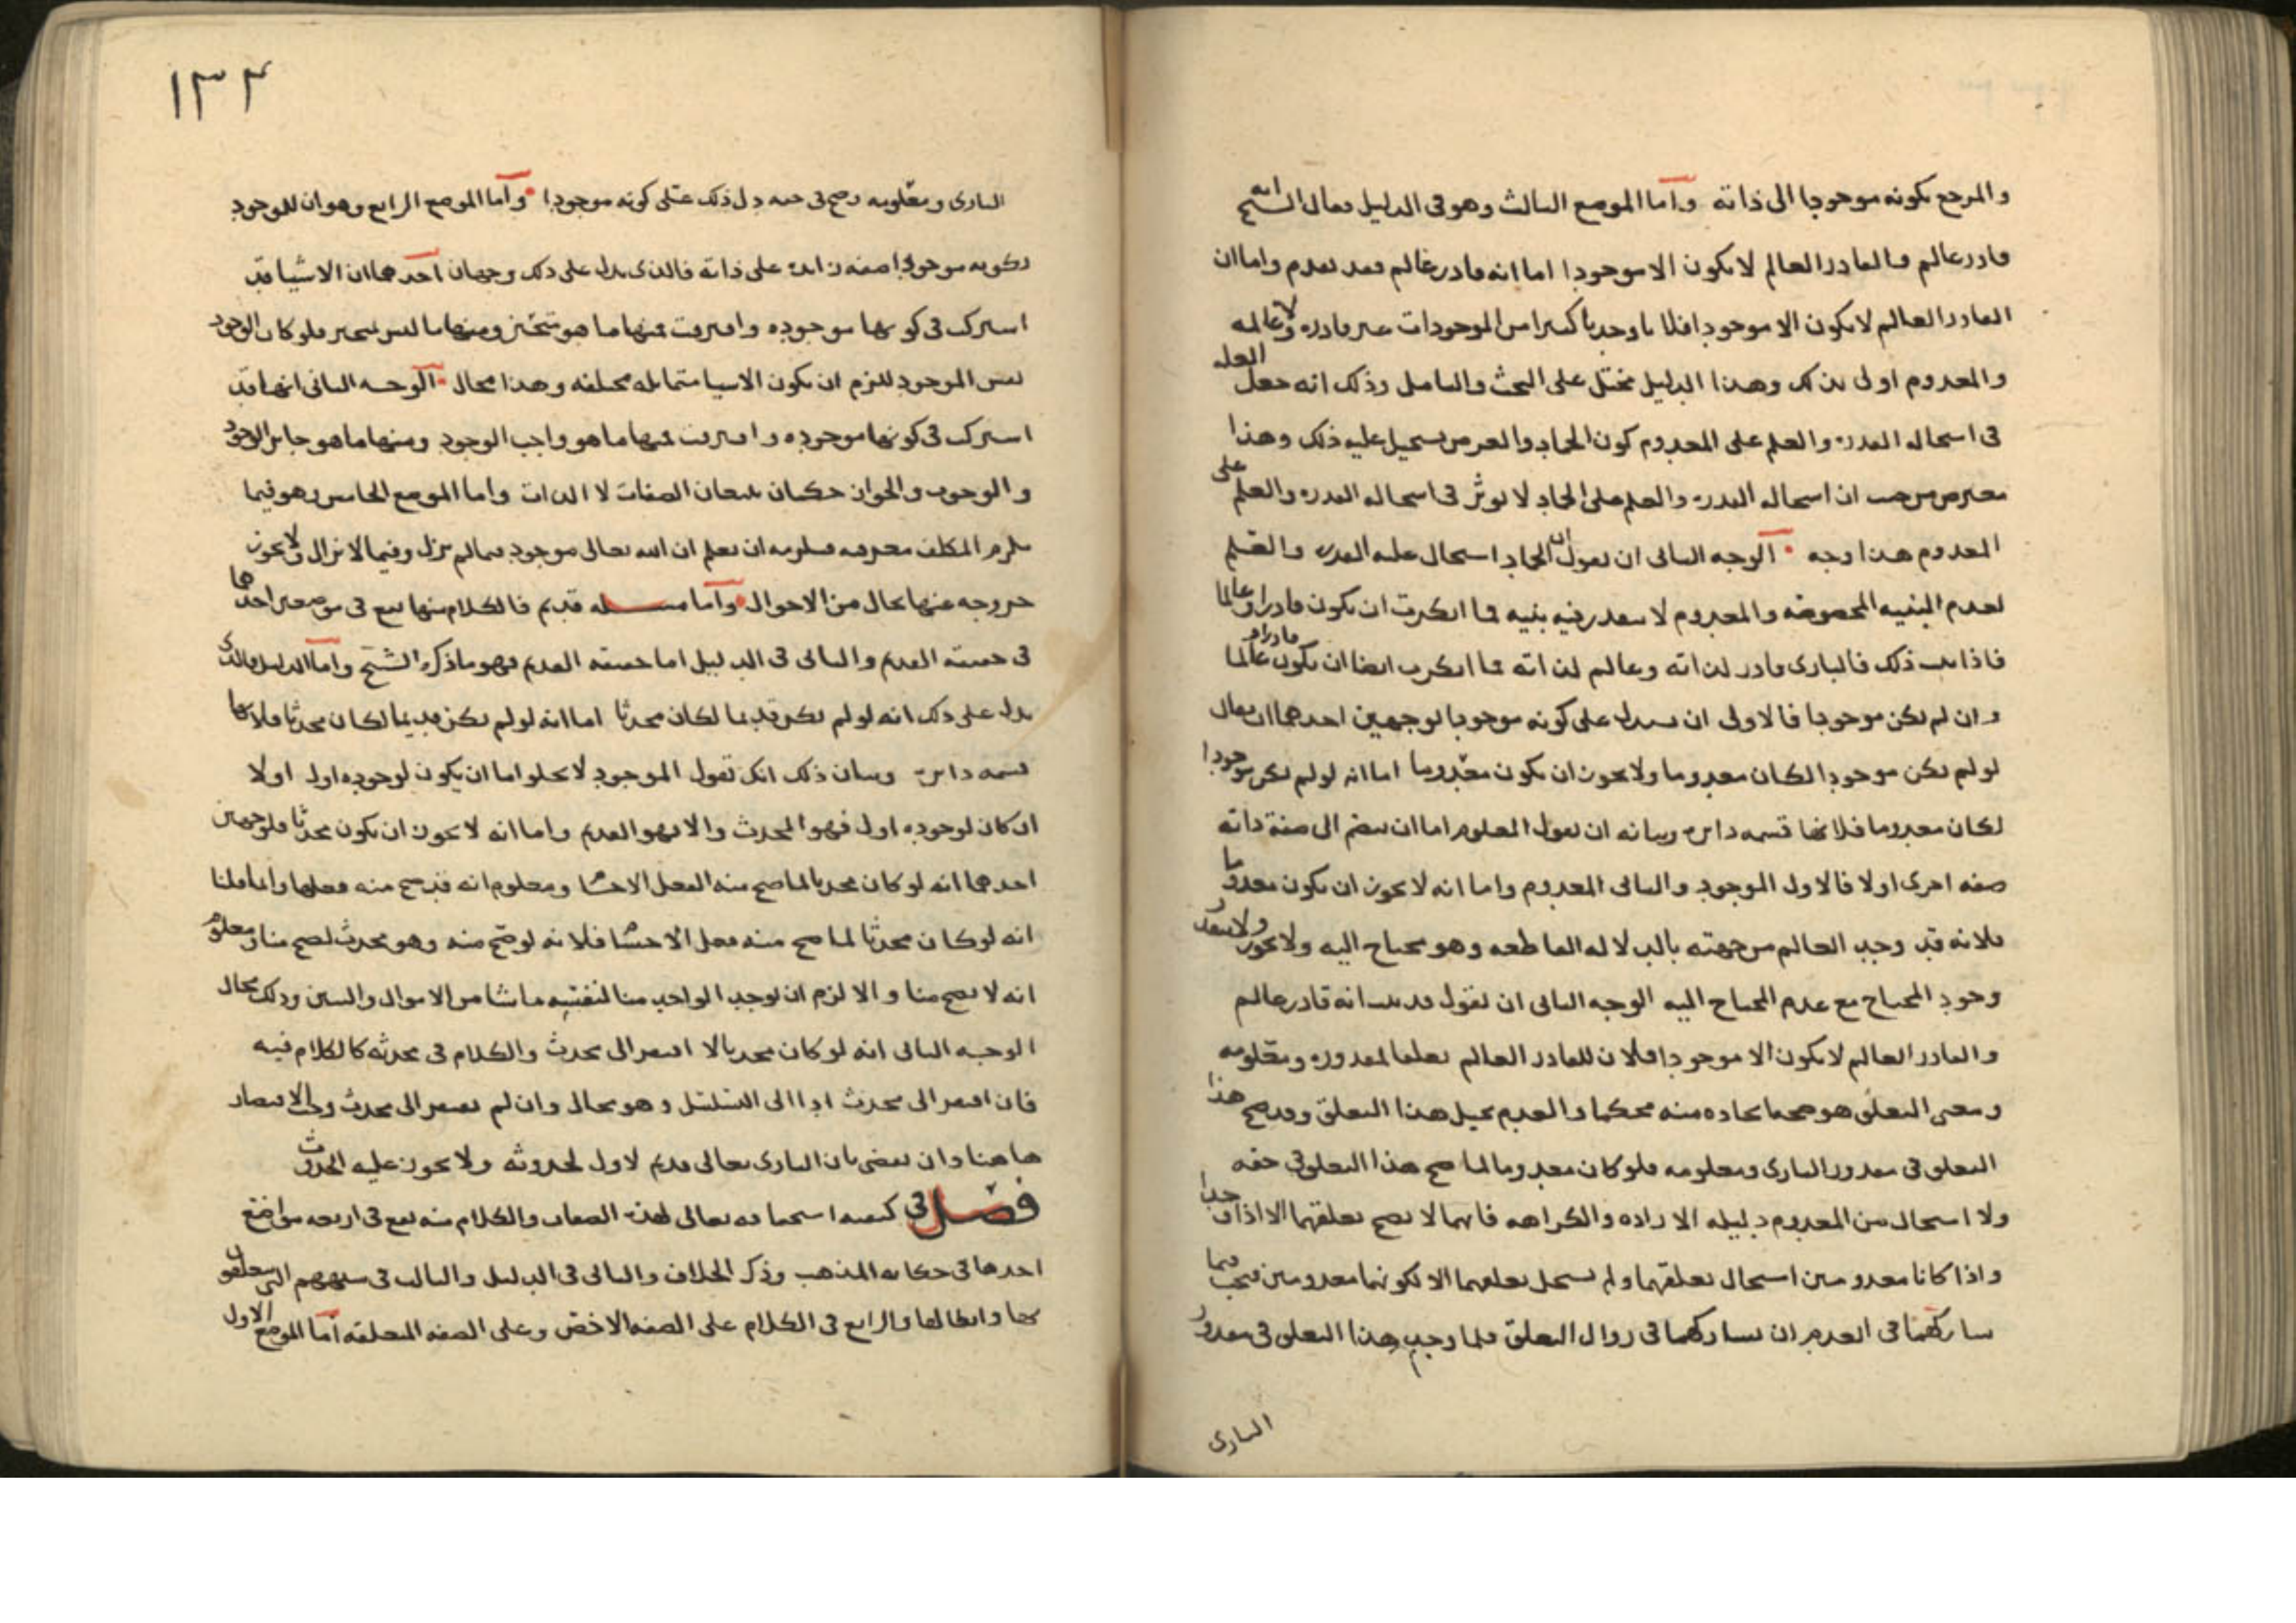 والمرجع بكونه موجودا الى ذاته وأما الموضع الثالث وهو فى الدليل فقال الشيخ انه
قادر عالم والقادر العالم لا يكون الا موجودا اما انه قادر عالم فقد تقدم واما ان
القادر العالم لا يكون الا موجودا فلانا وجدنا كثيرا من الموجودات غير قادره ولا عالمه
والمعدوم اولى بذلك وهذا الدليل مختل على البحث والتامل وذلك انه جعل العله
فى استحاله القدره والعلم على المعدوم كون الجماد والعرض يستحيل عليه ذلك وهذا
معترض من حيث ان استحاله القدره والعلم على الجماد لا يوثر فى استحاله القدره والعلم على
المعدوم هذا وجه الوجه الثانى ان نقول ان الجماد استحال عليه القدره والعلم
لعدم البنيه المخصوصه والمعدوم لا يتعذر فيه بنيه فما انكرت ان يكون قادرا وعالما
فاذا ثبت ذلك فالبارى قادر لذاته وعالم لذاته فما انكرت ايضا ان يكون قادرا عالما
وان لم يكن موجودا فالاولى ان يستدل على كونه موجودا لوجهين احدهما ان يقال
لو لم يكن موجودا لكان معدوما ولا يجوز ان يكون معدوما اما انه لو لم يكن موجودا
لكان معدوما فلانها قسمه دائره وبيانه ان نقول المعلوم اما ان ينضم الى صفة ذاته
صفه اخرى اولا فالاول الموجود والثانى المعدوم واما انه لا يجوز ان يكون معدوما
فلانه قد وجد العالم من جهته بالدلاله القاطعه وهو محتاج اليه ولا يجوز
وجود المحتاج مع عدم المحتاج اليه الوجه الثانى ان نقول قد ثبت انه قادر عالم
والقادر العالم لا يكون الا موجودا فلان للقادر العالم تعلقا لمقدوره ومعلومه
ومعنى التعلق هو صحه ايجاده منه محكما والعدم يحيل هذا التعلق وقد صح هذا
التعلق فى مقدور البارى ومعلومه فلو كان معدوما لما صح هذا التعلق فى حقه
ولا استحال من المعدوم دليله الاراده والكراهه فانهما لا يصح تعلقهما الا اذا وجدا
واذا كانا معدومين استحال تعلقهما ولم يستحل تعلقهما الا لكونهما معدومين فيجب فيما
شاركهما فى العدم ان يشاركهما فى زوال التعلق فلما وجب هذا التعلق فى مقدور
البارى
١٣٣
البارى ومعلومه وصح فى حقه دل ذلك على كونه موجودا وأما الموضع الرابع وهو ان للموجود
بكونه موجودا صفه زائده على ذاته فالذى يدل على ذلك وجهان احدهما ان الاشيا قد
اشتركت فى كونها موجوده وافترقت فمنها ما هو متحيز ومنها ما ليس بمتحيز فلو كان الوجود
نفس الموجود للزم ان يكون الاشيا متماثله مختلفه وهذا محال الوجه الثانى انها قد
اشتركت فى كونها موجوده وافترقت فمنها ما هو واجب الوجود ومنها ما هو جائز الوجود
والوجوب والجواز حكمان يتبعان الصفات لا الذات واما الموضع الخامس وهو فيما
يلزم المكلف معرفته فيلزمه ان يعلم ان الله تعالى موجود فيما لم يزل وفيما لا يزال ولا يجوز
خروجه عنها بحال من الاحوال وأما مسله قديم فالكلام منها يقع فى موضعين احدهما
فى حقيقة القديم والثانى فى الدليل اما حقيقه القديم فهو ما ذكره الشيخ وأما الدليل فالذى
يدل على ذلك انه لو لم يكن قديما لكان محدثا اما انه لو لم يكن قديما لكان محدثا فلانها
قسمه دائره وبيان ذلك انك تقول الموجود لا يخلو اما ان يكون لوجوده اول اولا
ان كان لوجوده اول فهو المحدث والا فهو القديم واما انه لا يجوز ان يكون محدثا فلوجهين
احدهما انه لو كان محدثا لما صح منه الفعل الاحشا ومعلوم انه قد صح منه فعلها وانما قلنا
انه لو كان محدثا لما صح منه فعل الاحشا فلانه لو صح منه وهو محدث لصح منا ومعلوم
انه لا يصح منا والا لزم ان يوجد الواحد منا لنفسه ما شا من الاموال والبنين وذلك محال
الوجه الثانى انه لو كان محدثا لافتقر الى محدث والكلام فى محدثه كالكلام فيه
فان افتقر الى محدث ادا الى التسلسل وهو محال وان لم يفتقر الى محدث وجب الاقتصار
هاهنا وان نقضى بان البارى تعالى قديم لا اول لحدوثه ولا يجوز عليه الحدوث
فصل فى كيفيه استحقاقه تعالى لهذه الصفات والكلام منه يقع فى اربعه مواضع
احدها فى حكايه المذهب وذكر الخلاف والثانى فى الدليل والثالث فى شبههم التى يتعلقون
بها وابطالها والرابع فى الكلام على الصفه الاخص وعلى الصفه المتعلقه أما الموضع الاول